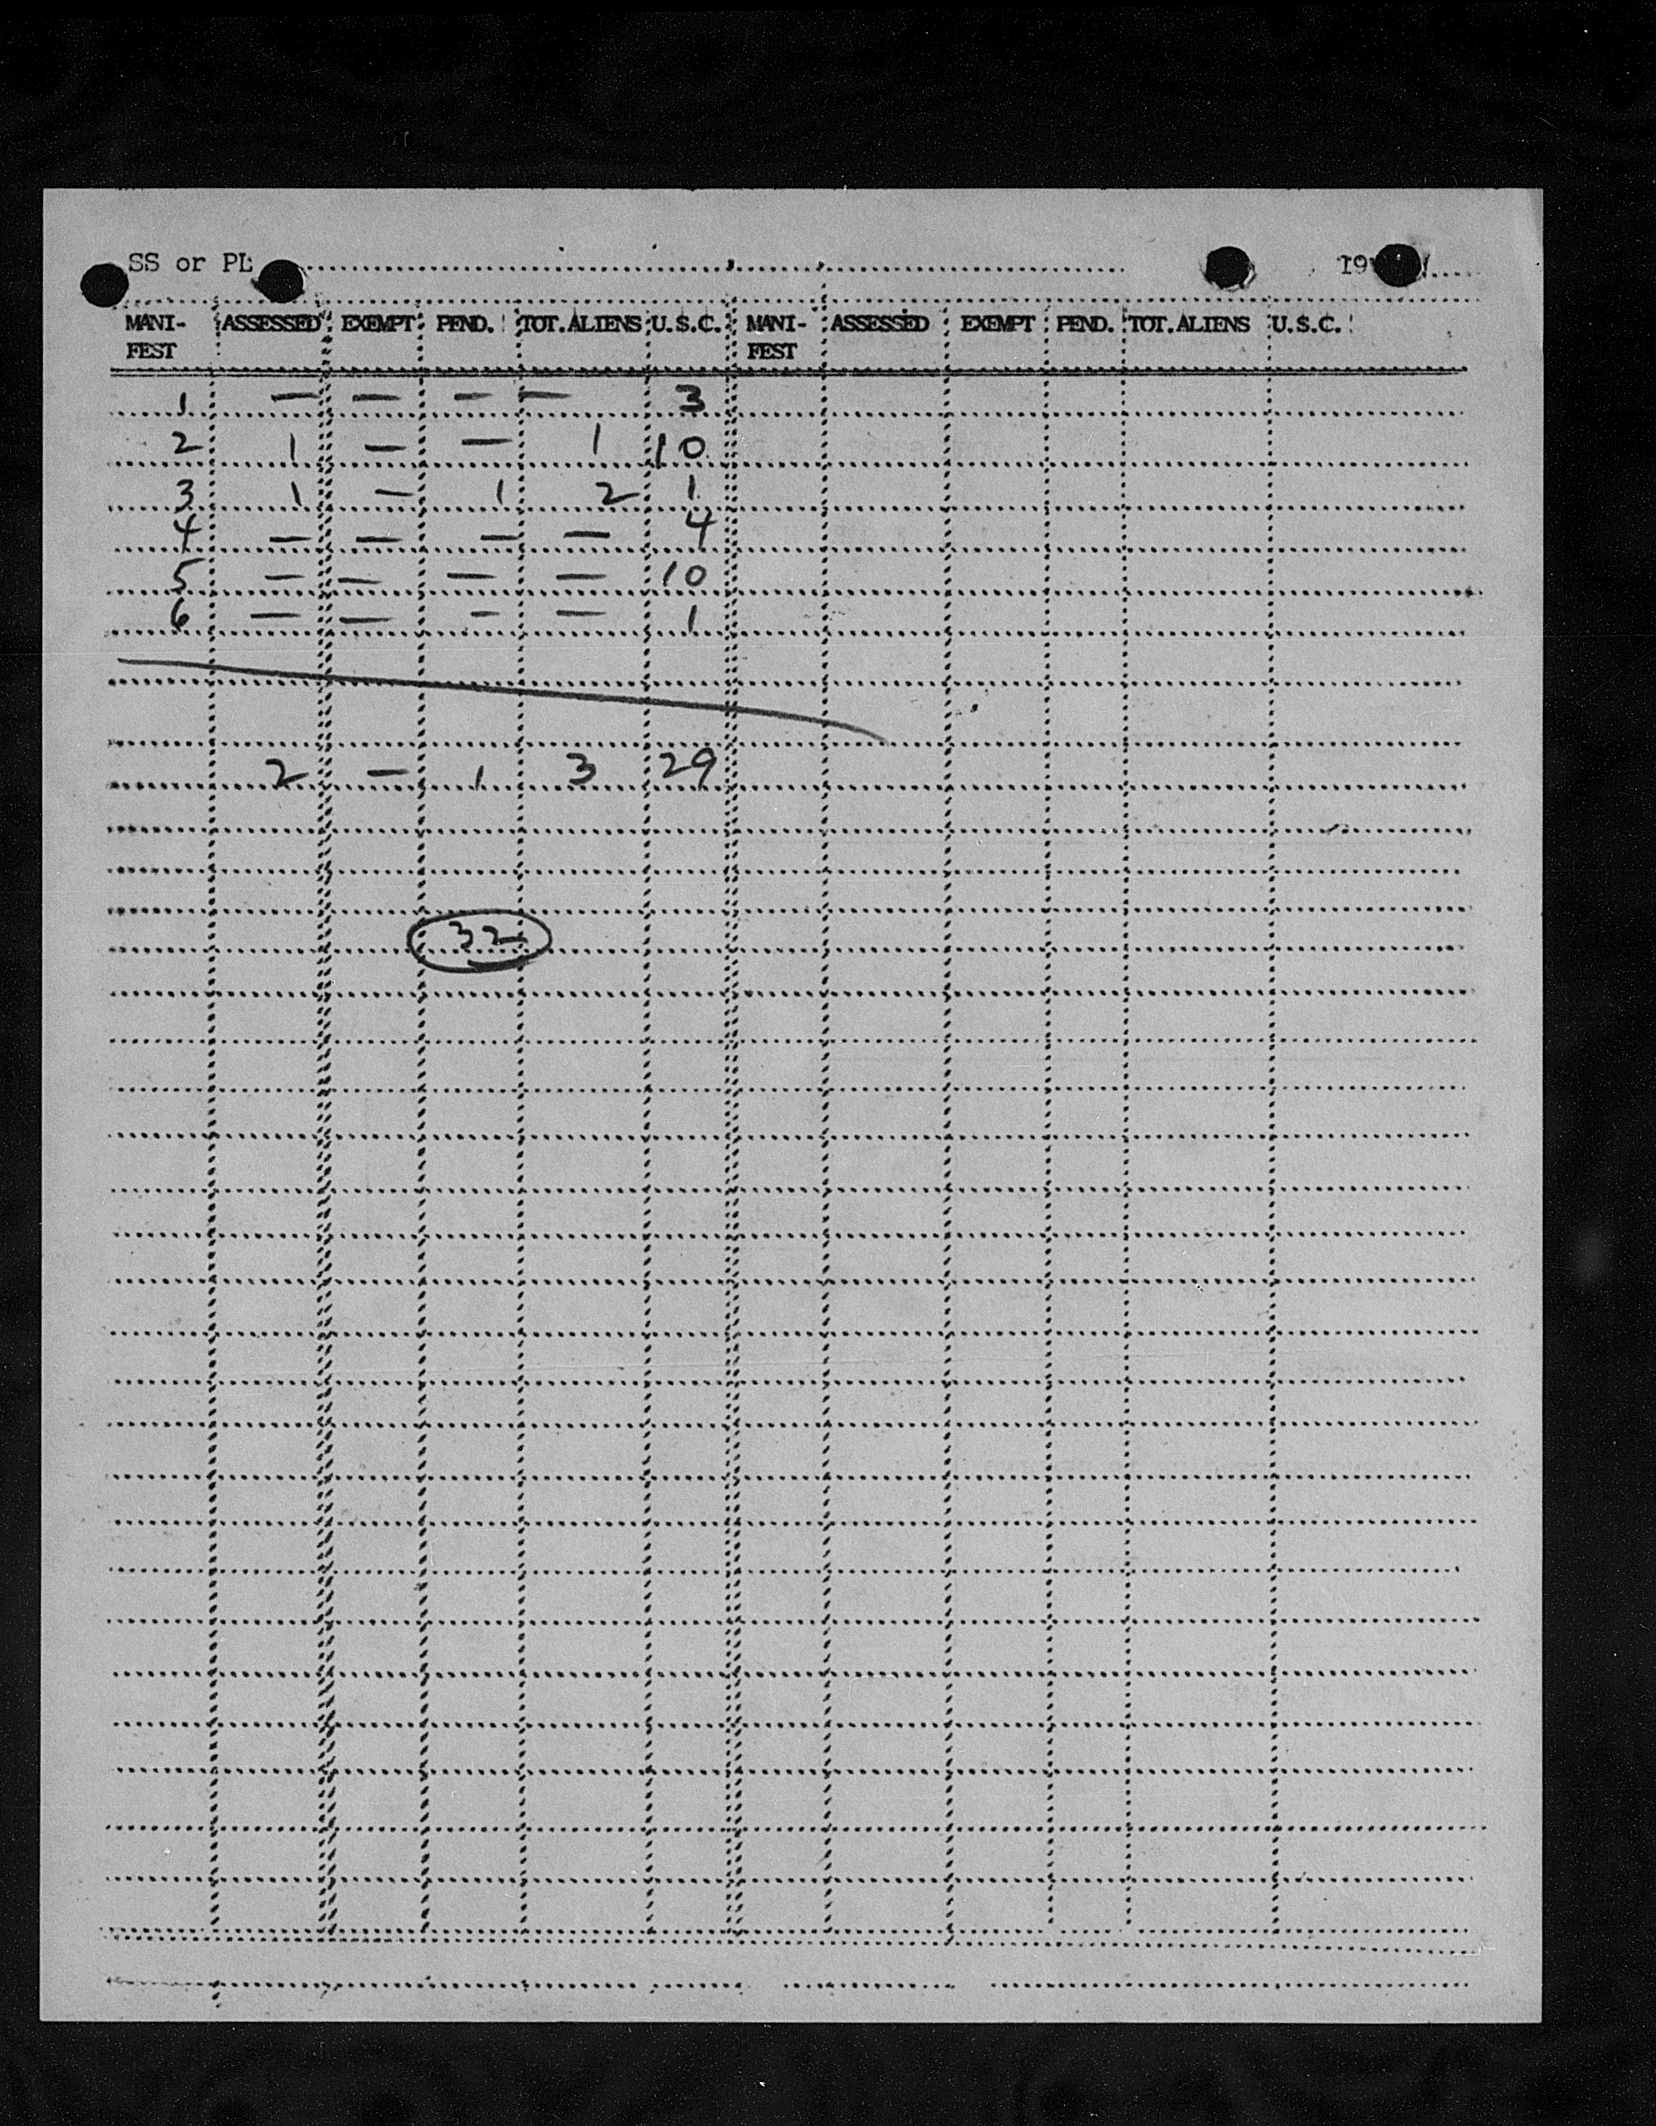 SS or PL 19
MANI- ASSESSED EXEMPT PEND. TOT.ALIENS U.S.C. MANI- ASSESSED EXEMPT PEND. TOT.ALIENS U.S.C.
FEST FEST
1 — — — — 3
2 1 — — 1 10
3 1 — 1 2 1
4 — — — — 4
5 — — — — 10
6 — — — — 1
2 — 1 3 29
32